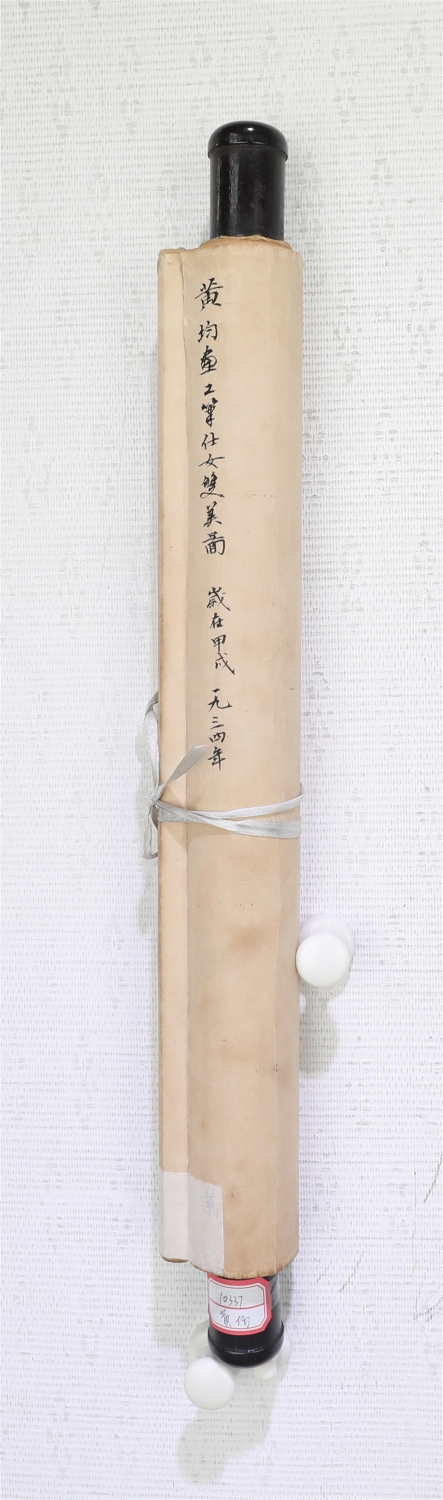 黄均画工筆仕女雙美圖 歲在甲戌 一九三四年
10337